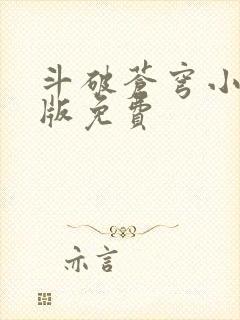 斗破苍穹小
版免費
亦言